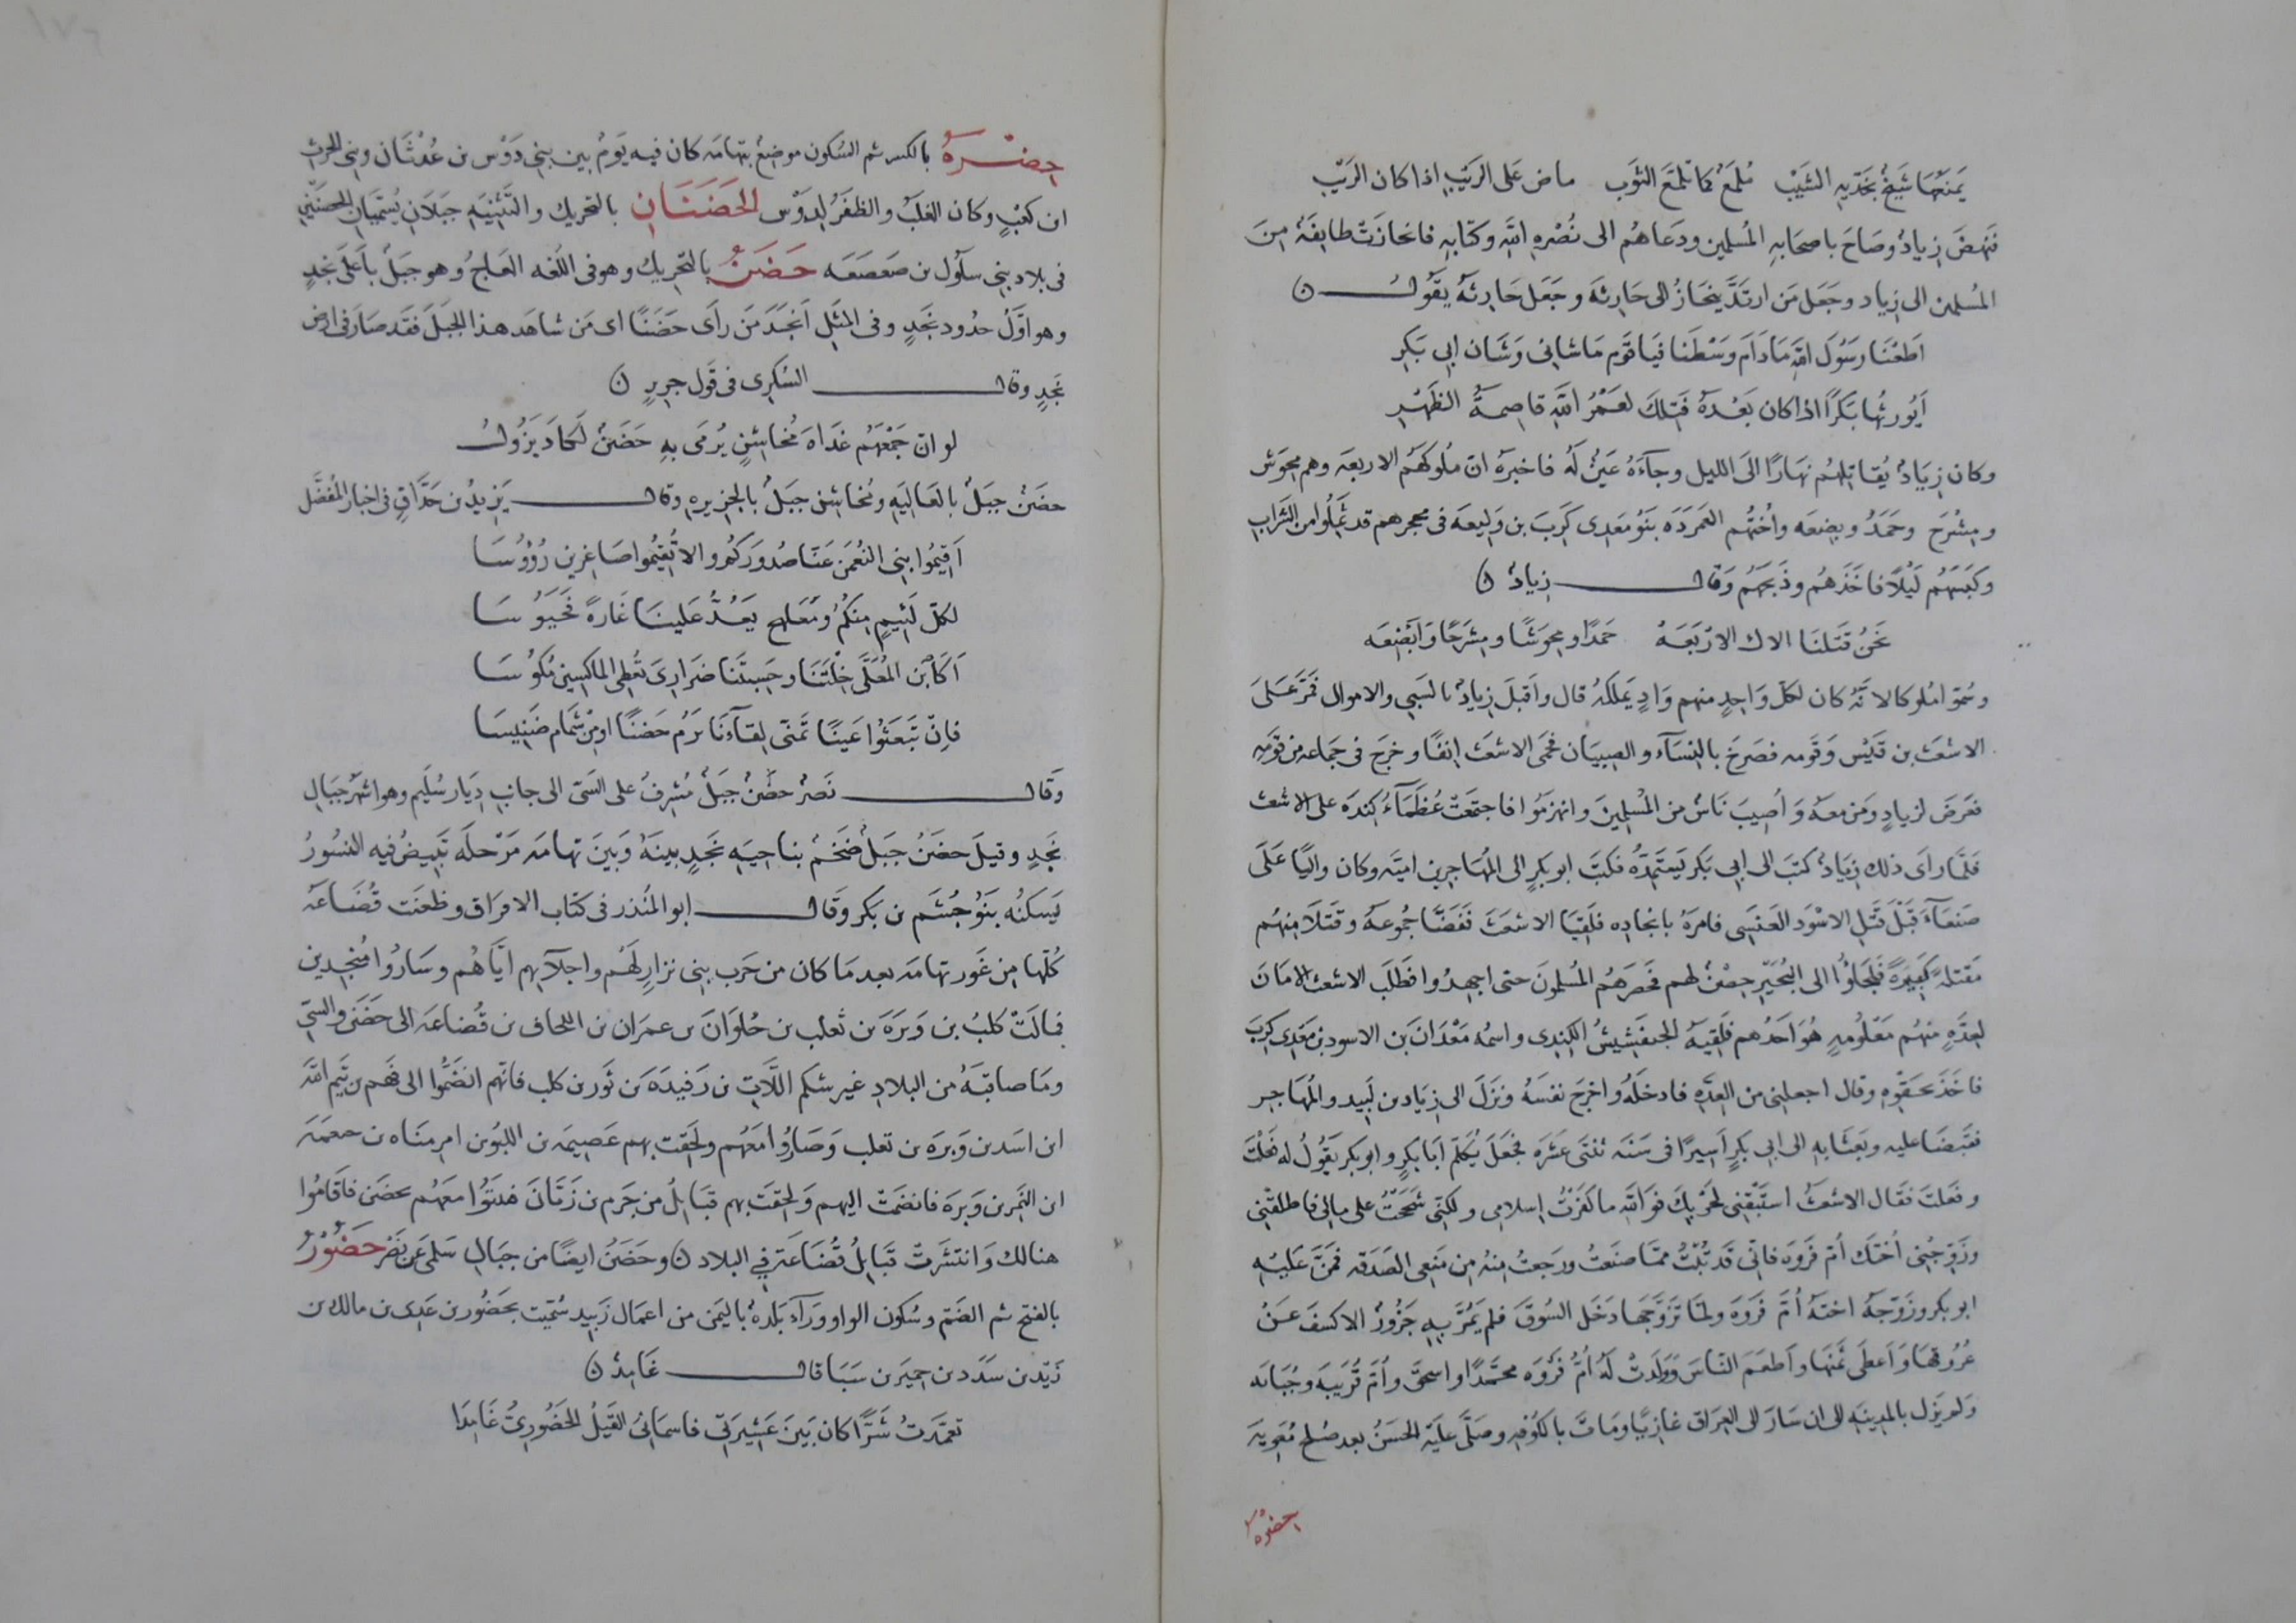 يَمنَعُهَا شَيخٌ بخَدّيهِ الشَيْبْ مُلَمَعٌ كما تُلمَعُ الثوَب ماض على الرَيْبِ اذا كان الرَيْب
فنَهضَ زيادٌ وصَاحَ باصحَابهِ المُسلمين ودَعَاهُم الى نُصْره اللهِ وكتابهِ فانحازَتْ طايفَةٌ مِنَ
المُسلمين الى زياد وجَعَل مَن ارتَدَّ ينحَازُ الى حَارِثهَ وجَعَل حَارِثَهُ يقَوُلُ ن
اَطَعْنَا رسَوُلَ اللهِ مَا دَامَ وَسْطَنَا فيَا قوَم مَا شانى وَشَان ابى بَكرِ
اَيُورِثُهَا بَكراً اذا كان بَعْدَهُ فَتِلكَ لعَمْرُ اللهِ قاصِمةُ الظَهْرِ
وكان زيَادٌ يُقاتلهُم نهَارًا الىَ الليل وجآءَهُ عَينٌ لَهُ فاخبَرهُ انّ مُلوكهُم الاربعَه وهم مِحِوَش
ومِشْرَح وحَمَدُ وبضعَه واُختُهُم العَمرَدَه بَنوُ مَعدِى كَرِبَ بن وَليعَه فى محجرهم قد ثَمِلُوا من الشَراب
وكَبَسَهُم لَيْلاً فاخَذَهُم وذَبحَهُم وَقال زيادٌ ن
نَحنُ قَتَلنَا الاملاك الارْبَعَهْ حَمَدًا ومِحِوَشًا ومِشرَحًا وَاَبْضِعَه
وسُمّوا مُلوكا لانَّهُ كان لكلّ وَاحِدٍ منهم وَادٍ يَملكهُ قال واَقبلَ زيادٌ بالسَبى والاموال فمَرَّ عَلىَ
الاشعَث بن قَيْس وَقَومه فصَرخَ بالنِسَآء والصِبيَان فحَمِى الاشعَث انفًا وخرجَ فى جَماعه من قومَهِ
فعَرَضَ لزيادٍ وَمَن معَهُ وَاُصيبَ ناَسٌ من المُسلمِينَ وانهزمَوُا فاجتمعَتْ عُظمَآءُ كِندَه على الاشعث
فلَمّا راَى ذلك زِيَادٌ كتَبَ الى ابى بَكر يَستَمِدُّهُ فكتَبَ ابو بَكرٍ الى المُهَاجر بن اميَّه وكان واليًا عَلىَ
صَنعَآءَ قَبْلَ قَتْلِ الاسْوَد العَنسِى فامرَهُ بانجاده فلَقيَا الاشعَثَ ففَضَّا جمُوعَهُ وقتَلاَ منهُم
مَقتَلةً كَبيَرةً فلجَاؤُا الى النُجَيْرِ حصْنٌ لهم فحصَرهُم المُسلمونَ حتى اجهِدُوا فطَلَب الاشعث الامَانَ
لعِدَّةٍ منهُم مَعْلُومهٍ هُوَ اَحَدُهم فلَقِيَهُ الجفشيشُ الكِندِى واسمُه مَعْدَانَ بن الاسود بن مَعَدِى كَرِبَ
فاخَذَ بحَقْوِه وقال اجعلنى من العِدَّهِ فادخلَهُ واخرجَ نفسَهُ ونزَلَ الى زِيَاد بن لَبيد والمُهَاجر
فقَبضَا عليه وبَعَثا بهِ الى ابى بَكرٍ اَسيرًا فى سَنهَ ثنتَى عَشَرهَ فجعَلَ يُكَلّمُ اَبا بَكرٍ وابو بكر يَقوُلُ له فعَلْتَ
وفعَلتَ فقَال الاشعَثُ استَبْقِنى لحَرْبِكَ فوَاللهِ ما كفَرْتُ بعد اسِلامِى ولكنّى شَحَحْتُ على مالى فاَطلقْنى
وزوّجْنى اُختَك اُمّ فَروَه فانّى قَد تُبتُ ممّا صنَعتُ ورَجعتُ منهُ مِن مَنعِى الصَدَقه فمَنَّ عَليْهِ
ابو بكر وزَوَّجَهُ اختَهُ اُمَّ فَروَهَ ولمّا تزَوَّجَهَا دَخَل السُوقَ فلم يَمُرَّ بهِ جَزُورٌ الا كسَفَ عَنْ
عُرقُوبهَا وَاَعطَى ثمَنهَا واَطعَمَ الناسَ وَوَلدَتْ لَهُ اُمُّ فَرْوَه محمَّدًا واسحق واُمّ قُرَيبَه وحُبَابَه
ولم يَزَل بالمدينَهِ الى ان سَارَ الى العِرَاق غازيًا ومَاتَ بالكُوفهِ وصَلّى عَليَهِ الحَسَنُ بعد صُلح مُعَوِيَه
حضرة
حِضْرهُ بالكسر ثم السُكون موضِعٌ بتهَامَه كان فيه يَومٌ بين بنى دَوْس بن عُدْثَان وبنى الحرث
ابن كعْبٍ وكان الغلَبُ والظفَرُ لدَوْس الحَضَنَانِ بالتحريك والتَثنِيَهِ جَبَلانِ يُسَمّيَان الحضَنَينِ
فى بلاد بنى سلَوُل بن صَعصَعَه حَضَنُ بالتحريك وهو فى اللُغه العَاجُ وهو جبَلٌ باَعلَى نجدٍ
وهو اوَّلُ حدُود نَجَدٍ وفى المثَلِ اَنجَدَ مَن رأى حَضَنًا اى مَن شاهَد هذا الجَبَلَ فقَد صَارَ فى ارض
نَجدٍ وقال السُكرى فى قَول جريرٍ ن
لو انّ جَمْعَهُم غدَاهَ مُخاشِنٍ يُرمَى بهِ حَضَنٌ لكَادَ يَزُولُ
حضَنٌ جبَلٌ بالعَاليَهِ ومُخاشِن جبَلٌ بالجزيره وقال يَزيدُ بن حَذّاقٍ فى اخبار المُفضَّل
اَقيمُوا بنى النُعْمَنِ عَنّا صدُورَكُم والا تُقيمُوا صَاغِرين رُؤُوسَا
لكلّ لَئيمٍ منكُمُ ومُعَلهج يَعُدُّ عَلينَا غَارةً فخَيُوسَا
اَكاَبن المُعَلّى خِلْتَنَا وحَسِبتَنَا ضَرَارِىَ نُعْطِى المَاكِسِين مُكوُسَا
فاِنْ تَبعَثُوا عَينًا تمَنّى لِقآءَنَا تَرُم حَضنًا او مِن شَمَام ضَبِيسَا
وَقال نَصْرٌ حَضَنٌ جبَلٌ مُشرِفٌ على السّىّ الى جانب دِيَار سُليَم وهو اشهَرُ جبَالِ
نَجدٍ وقيلَ حضَنٌ جبَلٌ ضخَمٌ بناحيَهِ نَجدٍ بينَهُ وَبَينَ تهامَه مَرْحلَه تَبيضُ فيه النسُورُ
يَسكنُه بَنوُ جُشَم بن بكَر وَقال ابو المُنذر فى كتَاب الافرَاق وظعنَت قُضَاعَهُ
كُلّها مِن غَور تهامَه بعد مَا كان من حَرب بنى نزارٍ لهُم واجلآيهم ايّاهُم وسَارُوا مُنْجِدين
فمالَتْ كلبُ بن وَبرَه بن تغلب بن حُلوَان بن عمرَان بن الحاف بن قُضَاعَه الى حَضَن والسّىّ
ومَا صاقبَهُ من البلادِ غير شكم اللاّتِ بن رَفِيدَه بن ثَور بن كلب فانّهم انضَمُّوا الى فهم بن تَيم الله
ابن اسَد بن وَبرَه بن تغلب وَصَارُوا معَهُم ولَحِقت بهم عُصيمَه بن اللبوُ بن امرِ منَاه بن
ابن النَمِر بن وَبرَه فانضمَتْ اليهم ولحِقَتْ بهم قَبَايلُ من جَرم بن زَبّانَ فثبَتُوا معَهُم بحضَن فاَقَامُوا
هنالك وَانتشَرتْ قبَايلُ قُضَاعَة فى البلاد ن وحَضَنُ ايضًا من جبَالِ سَلمَى عَن نَصْرٍ حَضُورُ
بالفتح ثم الضَم وسُكون الواو ورَآءِ بَلدَهٌ باليمَن من اعمَال زَبيد سُمّيَت بحَضُور بن عَدِى بن مالك بن
زَيْد بن سَدَد بن حِميَر بن سَبَا قال غَامِدٌ ن
تغمَّدتُ شَرًّا كان بَينَ عَشيَرتى فاسمَانىَ القَيلُ الحَضُورِىُّ غَامِدَا